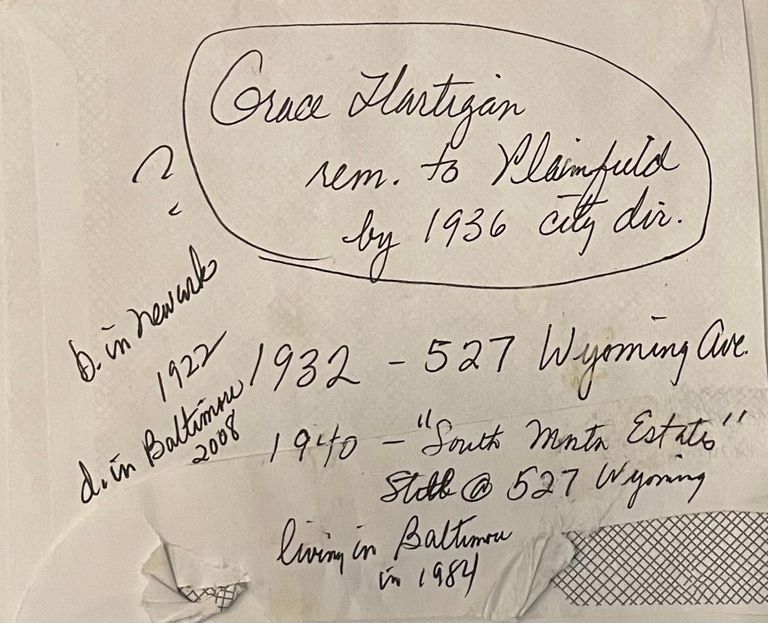 Grace Hartigan
rem. to Plainfield
by 1936 city dir.
?
b. in Newark
1922
d. in Baltimore
2008
1932 - 527 Wyoming Ave.
1940 - "South Mntn Estates"
Still @ 527 Wyoming
living in Baltimore
in 1984